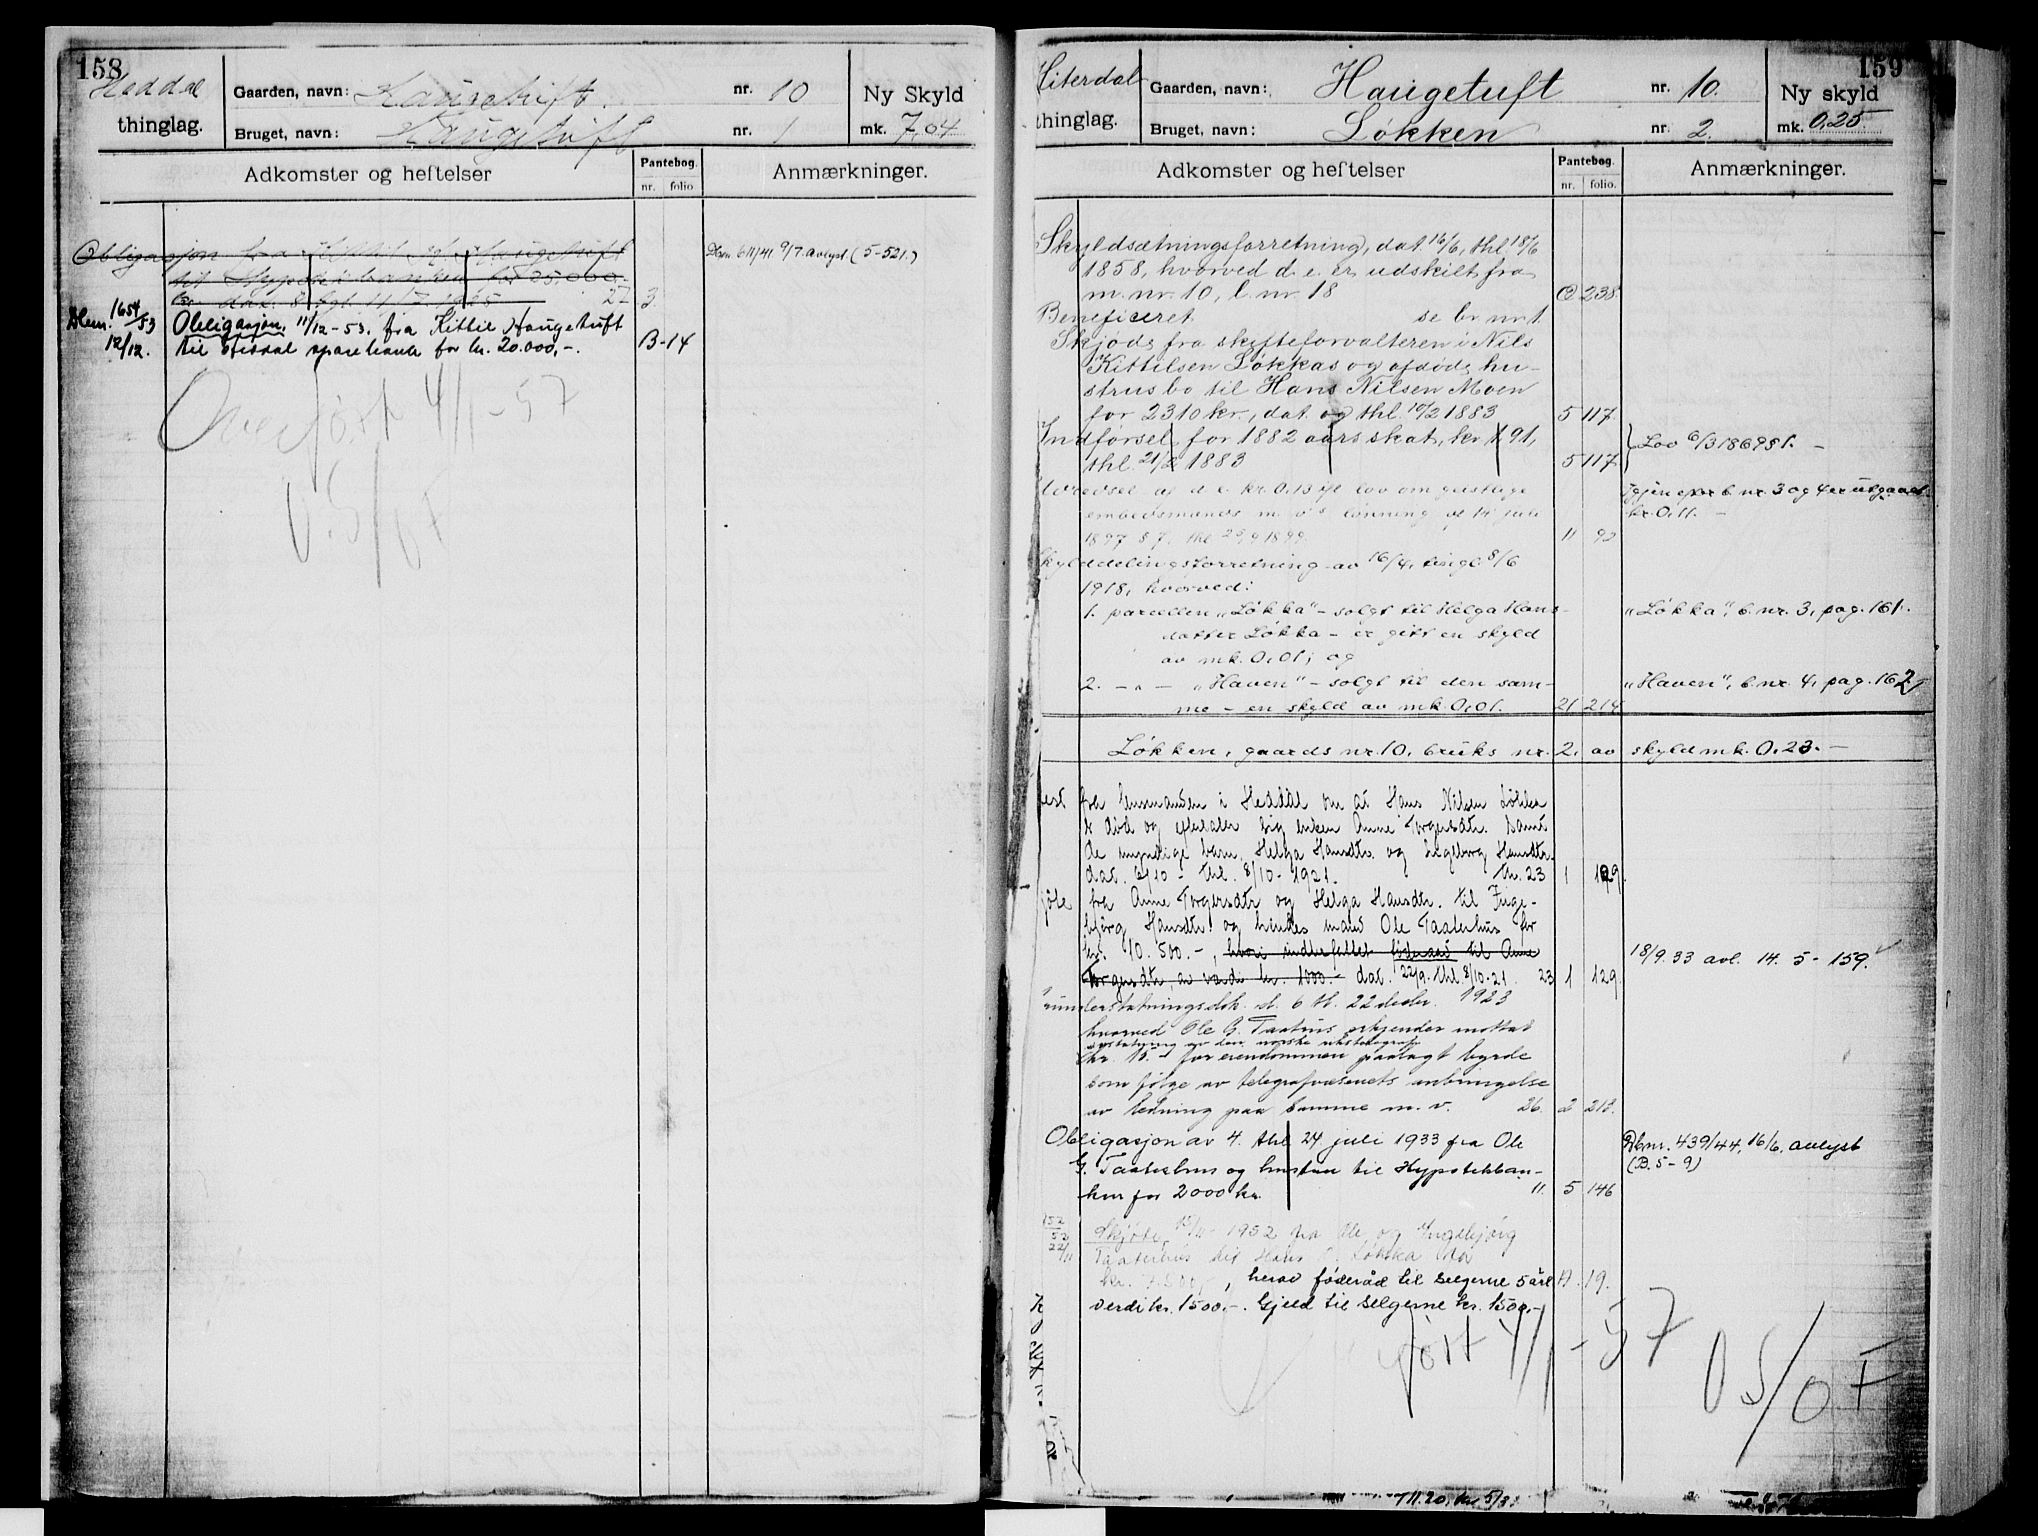 158
Heddal
thinglag.
Gaarden, navn: Haugetuft. nr. 10
Bruget, navn: Haugetuft nr. 1
Ny Skyld
mk. 7,04
Adkomster og heftelser
Pantebog.
nr. folio
Anmærkninger.
Obligasjon fra Kittil Haugetuft
til Hypotekbanken kr 25.000.
27 3.
Dbnr. 611/41 9/7. avlyst (5-521.)
Dbnr. 1654/53 Obligasjon, 11/12-53. fra Kittil Haugetuft
12/12. til Heddal sparebank for kr. 20.000,-. B-14
Overført 4/1-57
159
Hiterdal
thinglag.
Gaarden, navn: Haugetuft nr. 10.
Bruget, navn: Løkken nr. 2.
Ny skyld
mk. 0,25
Adkomster og heftelser
Pantebog.
nr. folio.
Anmærkninger.
Skyldsætningsforretning, dat. 16/6, thl. 18/6
1858, hvorved d. e. er udskilt fra
m. nr. 10, l. nr. 18 238.
Beneficeret se br. nr. 1.
Skjøde fra skifteforvalteren i Nils
Kittilsen Løkkas og afdøde hu-
strus bo til Hans Nilsen Moen
for 2310 kr., dat. og thl. 10/2 1883 5 117.
Indførsel for 1882 aars skat, kr. 1,91,
thl. 21/2 1883 5 117
Lov 6/3 1869 § 1. –
af d. e. kr. 0.13 ifl. lov om geistlige
embedsmænds m. v.s lønning af 14 juli
1897 § 7, thl. 29/9 1899. 11 92
Igjen efter b. nr. 3 og 4 er utgaaet
kr. 0.11. –
Skylddelingsforretning av 16/4, tingl. 8/6
1918, hvorved:
1. parcellen „Løkka" – solgt til Helga Hans-
datter Løkka – er gitt en skyld
av mk. 0,01; og
„Løkka", b. nr. 3, pag. 161.
2. – „ – „Haven" – solgt til den sam-
me – en skyld av mk. 0,01. 21 214
„Haven", b. nr. 4, pag. 162.
Løkken, gaards nr. 10, bruks nr. 2, av skyld mk. 0.23. –
fra lensmanden i Heddal om at Hans Nilsen Løkka
er død og efterlater sig enken Anne Torgersdtr. samt
de myndige barn Helga Hansdtr. og Ingeborg Hansdtr.
dat. 6/10 - thl. 8/10 - 1921. 23 1 129.
fra Anne Torgersdtr og Helga Hansdtr. til Inge-
björg Hansdtr. og hendes mand Ole Taaterhus for
kr. 10.500.-, hvori indbefattet föderaad til Anne
Torgersdtr, av værdi kr. 1000.- dat. 22/9. thl. 8/10-21. 23 1 129.
18/9.33 avl. 14. 5- 159.
d. 6 tl. 22 decbr. 1923
hvorved Ole G. Taaterhus erkjender mottat
erstatning av den norske rikstelegraf
kr. 15.- for eiendommen paalagt byrde
som følge av telegrafvæsenets anbringelse
av ledning paa samme m. v. 26. 2 213.
Obligasjon av 4. thl 24. juli 1933 fra Ole
G. Taaterhus og hustru til Hypotekban-
ken for 2000 kr. 11. 5 146
Dbnr. 439/44, 16/6, avlyst
(B. 5-9)
Skjøte, 15/11 1952 fra Ole og Ingebjörg
Taaterhus til Løkka for
kr. , herav føderåd til selgerne 5 årl. A. 19.
verdi kr. 1500,-. Gjeld til selgerne kr. 1500,-
Overført 4/1-57